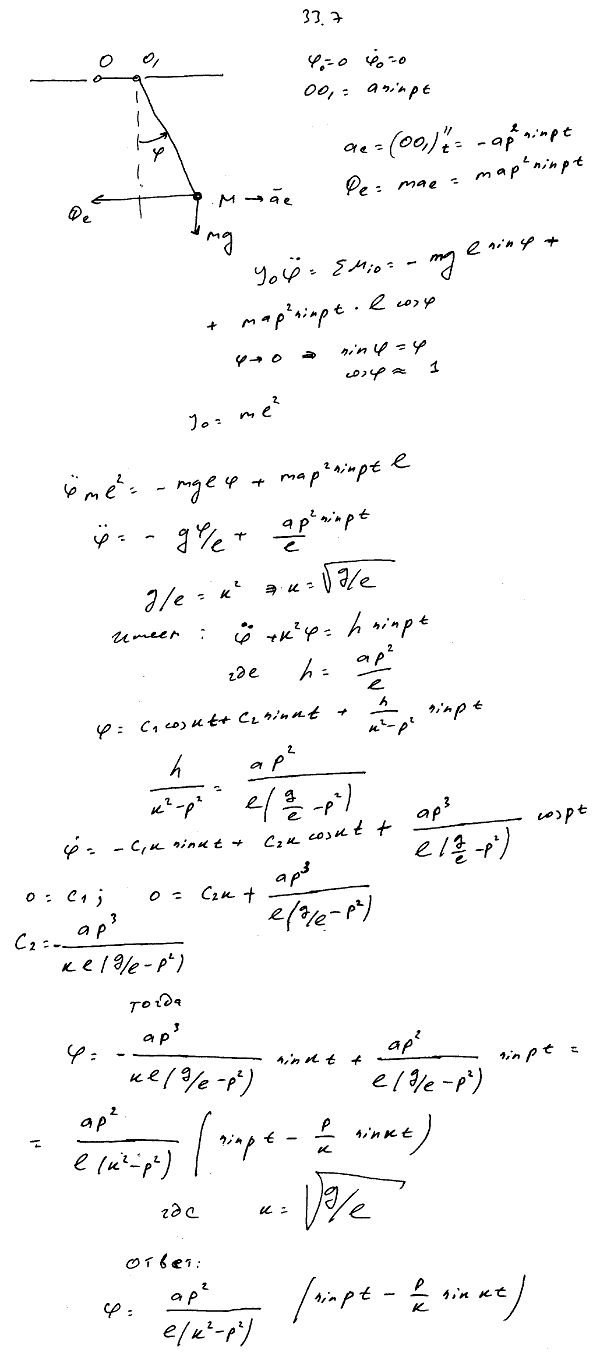 33.7
O O₁
φ₀=0 φ̇₀=0
OO₁ = a sin pt
φ
aₑ = (OO₁)ₜ'' = -ap² sin pt
Φₑ = maₑ = map² sin pt
Φₑ M → āₑ
mg
J₀φ̈ = ΣM_{i0} = - mg l sin φ +
+ map² sin pt · l cos φ
φ→0 ⇒ sin φ = φ
cos φ ≈ 1
J₀ = ml²
φ̈ ml² = - mglφ + map² sin pt l
φ̈ = - gφ/l + ap² sin pt / l
g/l = k² ⇒ k = √(g/l)
имеем : φ̈ + k²φ = h sin pt
где h = ap²/l
φ = C₁ cos kt + C₂ sin kt + h/(k²-p²) sin pt
h/(k²-p²) = ap²/(l(g/l - p²))
φ̇ = -C₁k sin kt + C₂k cos kt + ap³/(l(g/l - p²)) cos pt
0 = C₁; 0 = C₂k + ap³/(l(g/l - p²))
C₂ = - ap³/(kl(g/l - p²))
тогда
φ = - ap³/(kl(g/l - p²)) sin kt + ap²/(l(g/l - p²)) sin pt =
= ap²/(l(k²-p²)) (sin pt - p/k sin kt)
где k = √(g/l)
ответ:
φ = ap²/(l(k²-p²)) (sin pt - p/k sin kt)